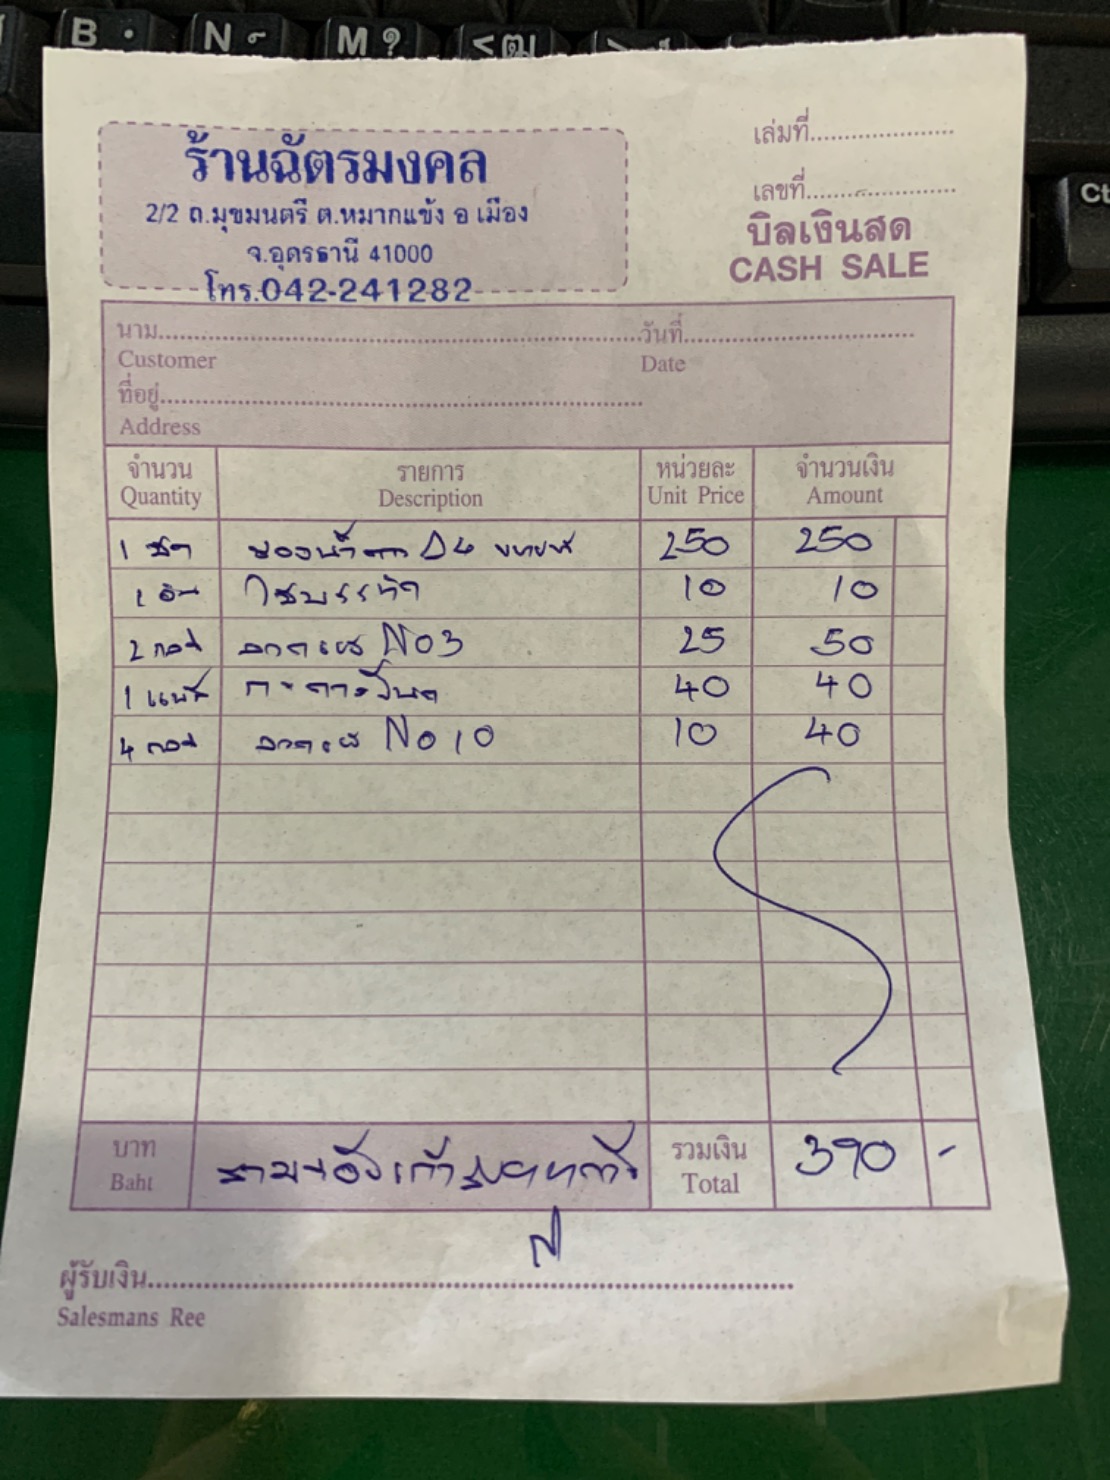 B
N
M ?
<ฒ
Ct
เล่มที่
ร้านฉัตรมงคล
เลขที่
2/2 ถ.มุขมนตรี ต.หมากแข้ง อ เมือง
บิลเงินสด
จ.อุดรธานี 41000
CASH SALE
โทร.042-241282
นาม วันที่
Customer Date
ที่อยู่
Address
จำนวน รายการ หน่วยละ จำนวนเงิน
Quantity Description Unit Price Amount
1 ซองน้ำตาล 250 250
1 อัน ไม้บรรทัด 10 10
2 กล่อง ลวดเย็บ No 3 25 50
1 แพ็ค 40 40
4 กล่อง ลวดเย็บ No 10 10 40
บาท สามร้อยเก้าสิบบาทถ้วน รวมเงิน 390 -
Baht Total
ผู้รับเงิน
Salesmans Ree